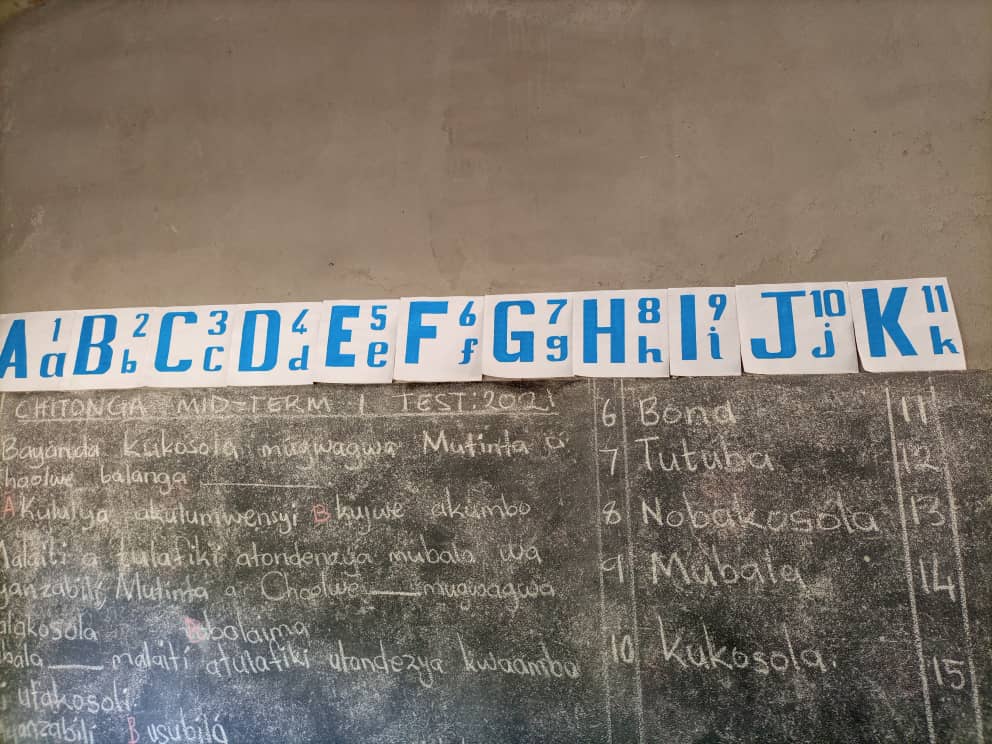 A 1 a B 2 b C 3 c D 4 d E 5 e F 6 f G 7 g H 8 h I 9 i J 10 j K 11 k
CHITONGA MID-TERM 1 TEST: 2021
Bayanda kukosola mugwagwa Mutinta a
balanga
A kululya akulumwensyi B kujwe akumbo
a tulafiki atondenzya mubala wa
Mutinta a Choolwe mugwagwa
malaiti atulafiki atondezya kwaamba
utakosoli
B usubila
6 Bona
7 Tutuba
8 Nobakosola
9 Mubala
10 Kukosola.
11
12
13
14
15